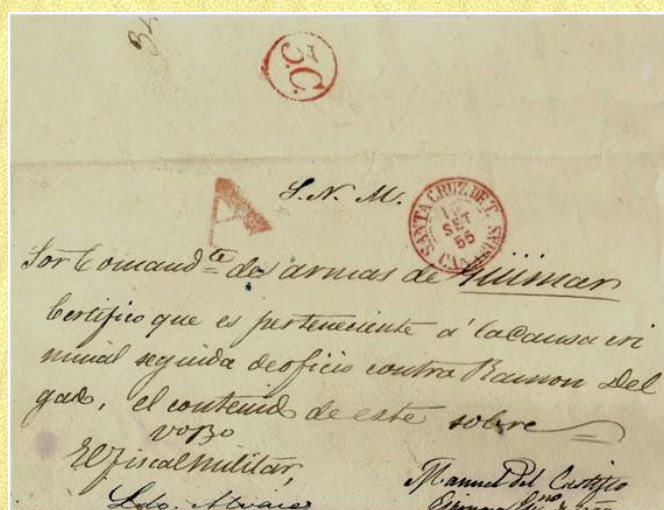 3C.
A
S. N. M.
SANTA CRUZ DE T.
SET
55
CANARIAS
Sor Comandte de armas de Güimar
Certifico que es perteneciente á la Causa cri
minal seguida de oficio contra Ramon Del
gado, el contenido de este sobre
VoBo
El fiscal militar,
Manuel Del Castillo
Ldo. Alvarez